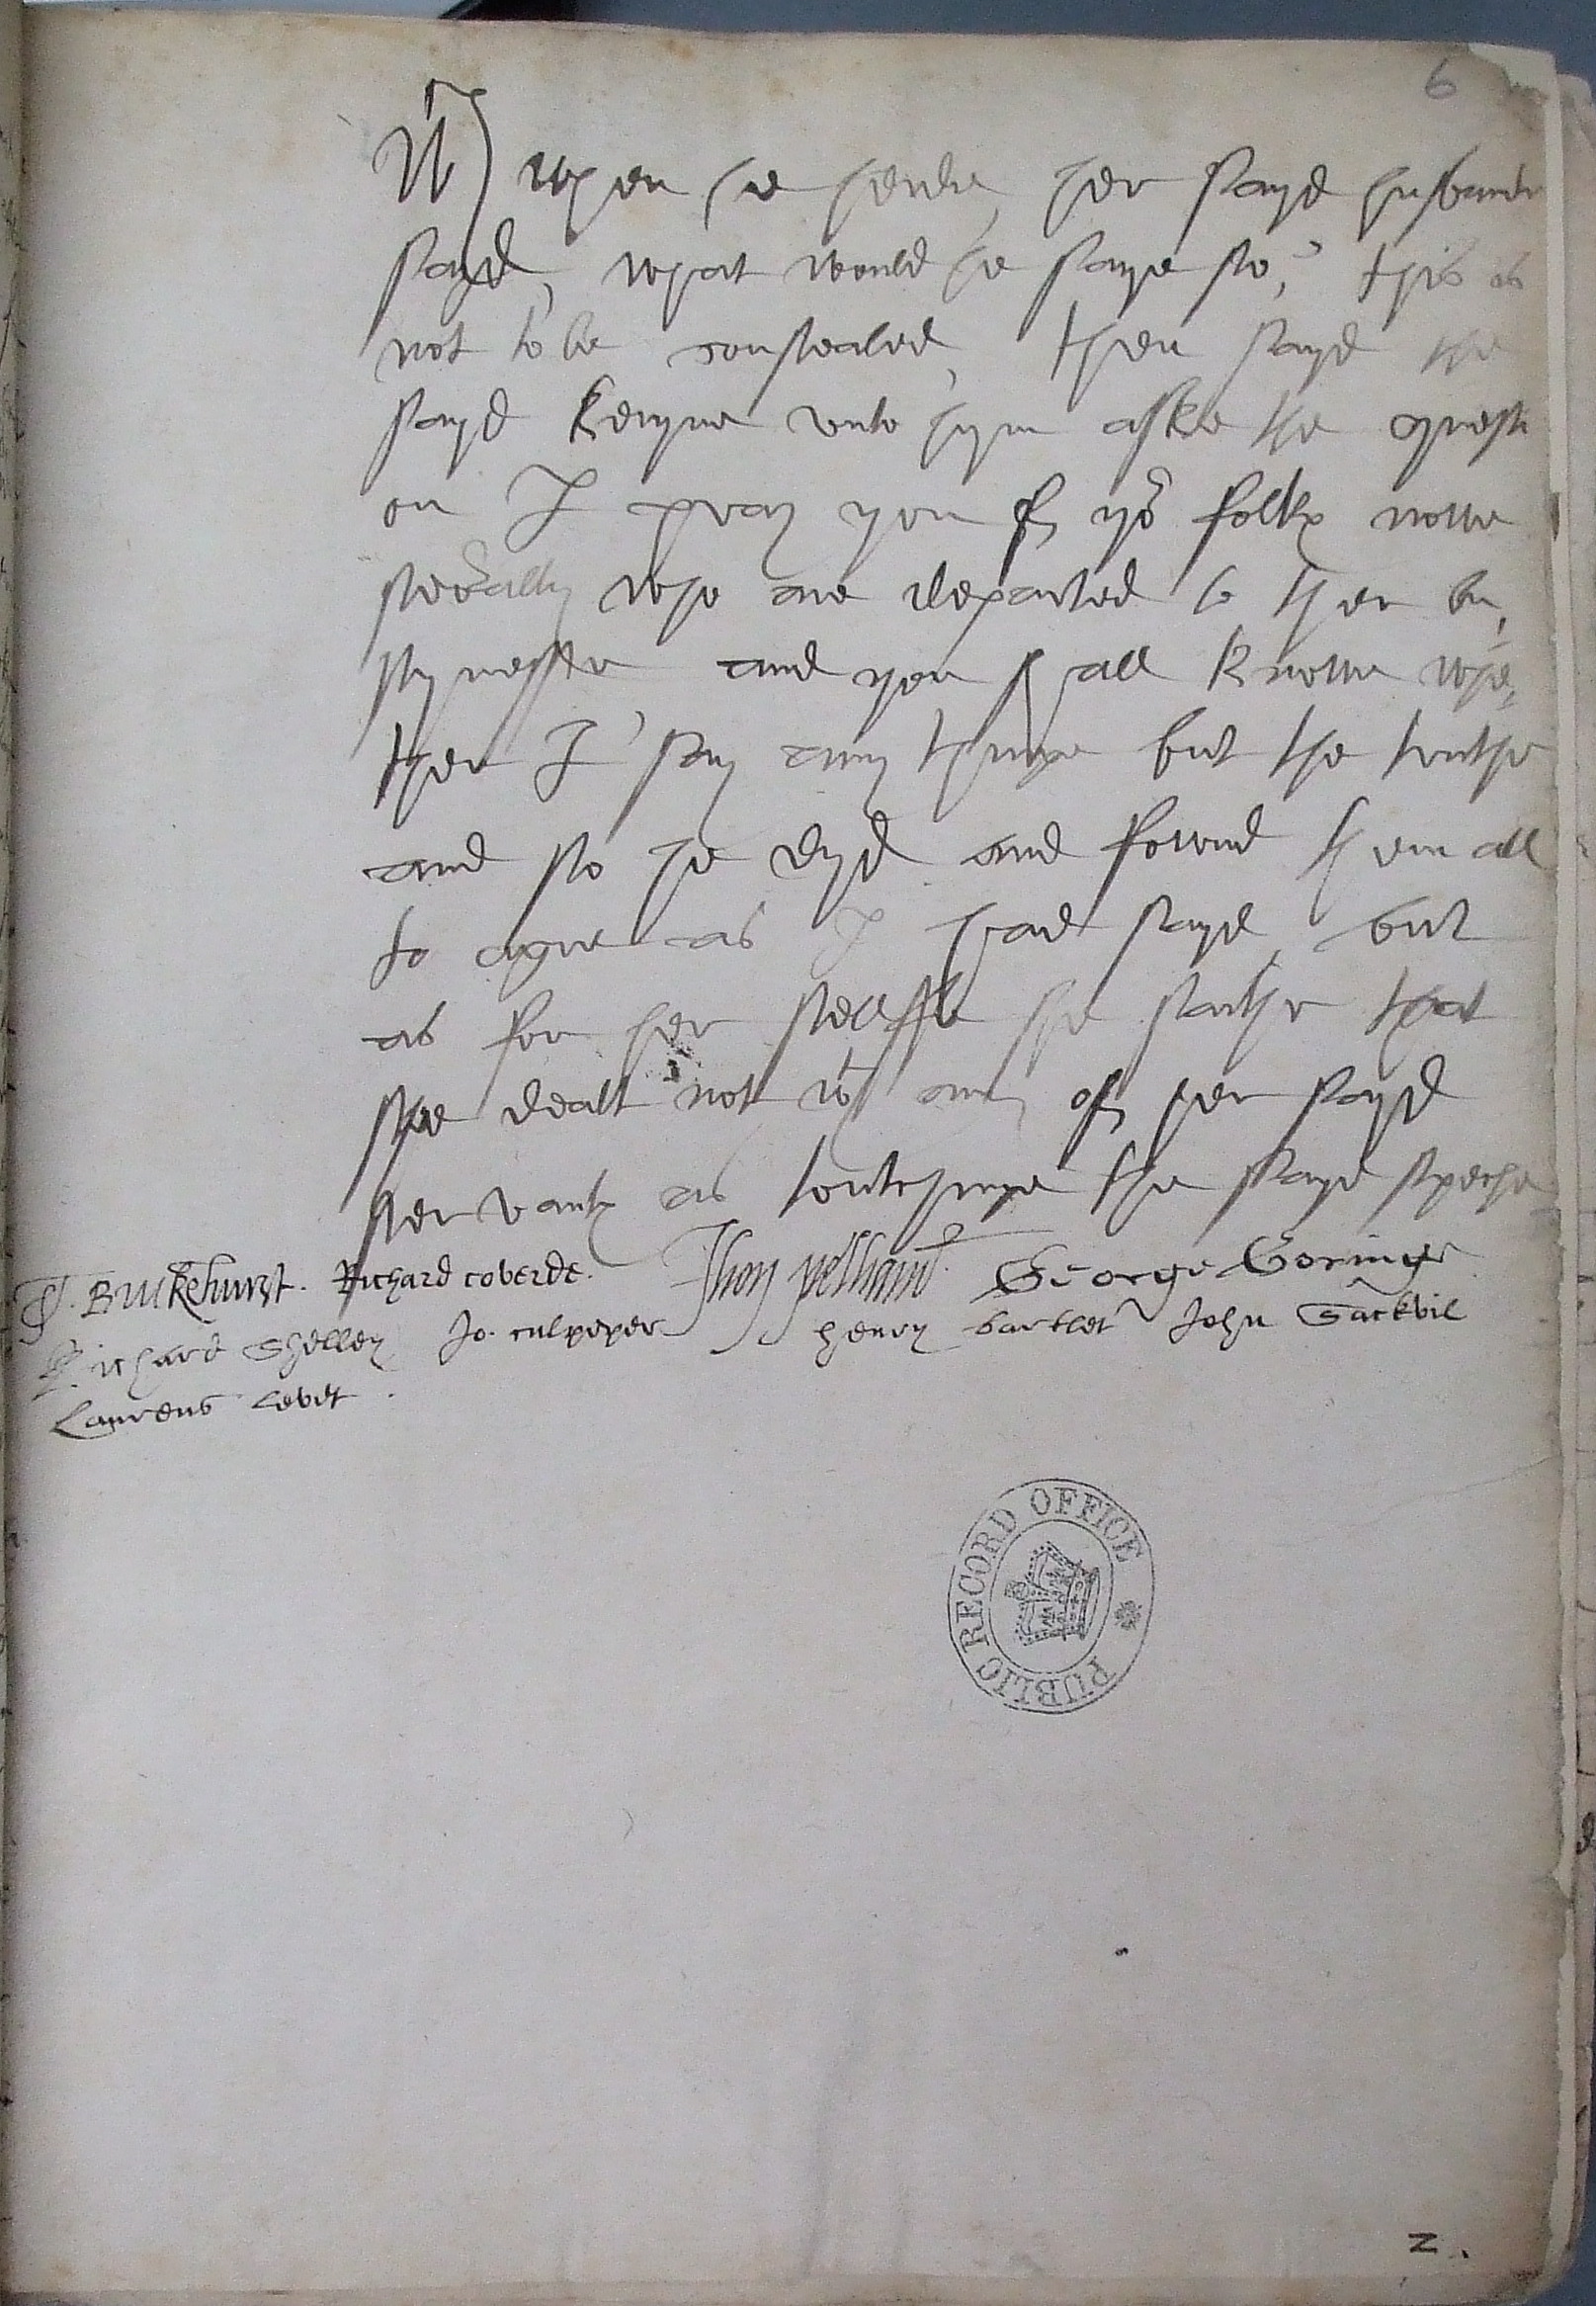 6
W) when he herde, her sayd husbande
sayd, what would he saye so, this is
not to be consealed, then sayd the
sayd keryne unto hym aske the questi
on I pray you of yor folkę nowe
severally who are departed to ther bu,
synesse and you shall knowe whe,
ther I say any thinge but the truthe
and so he dyd and fownd them all
to agre as I had sayd, but
as for her sellffe she saithe that
she dealt not wt any of her sayd
servantę as towchinge the sayd speche
T. Buckehurst. Richard coverde. Jhon pelham. George Goringe
Richard Shelley Jo. culpeper henry bartlet John Sackvil
Laurens levit.
PUBLIC RECORD OFFICE
2.